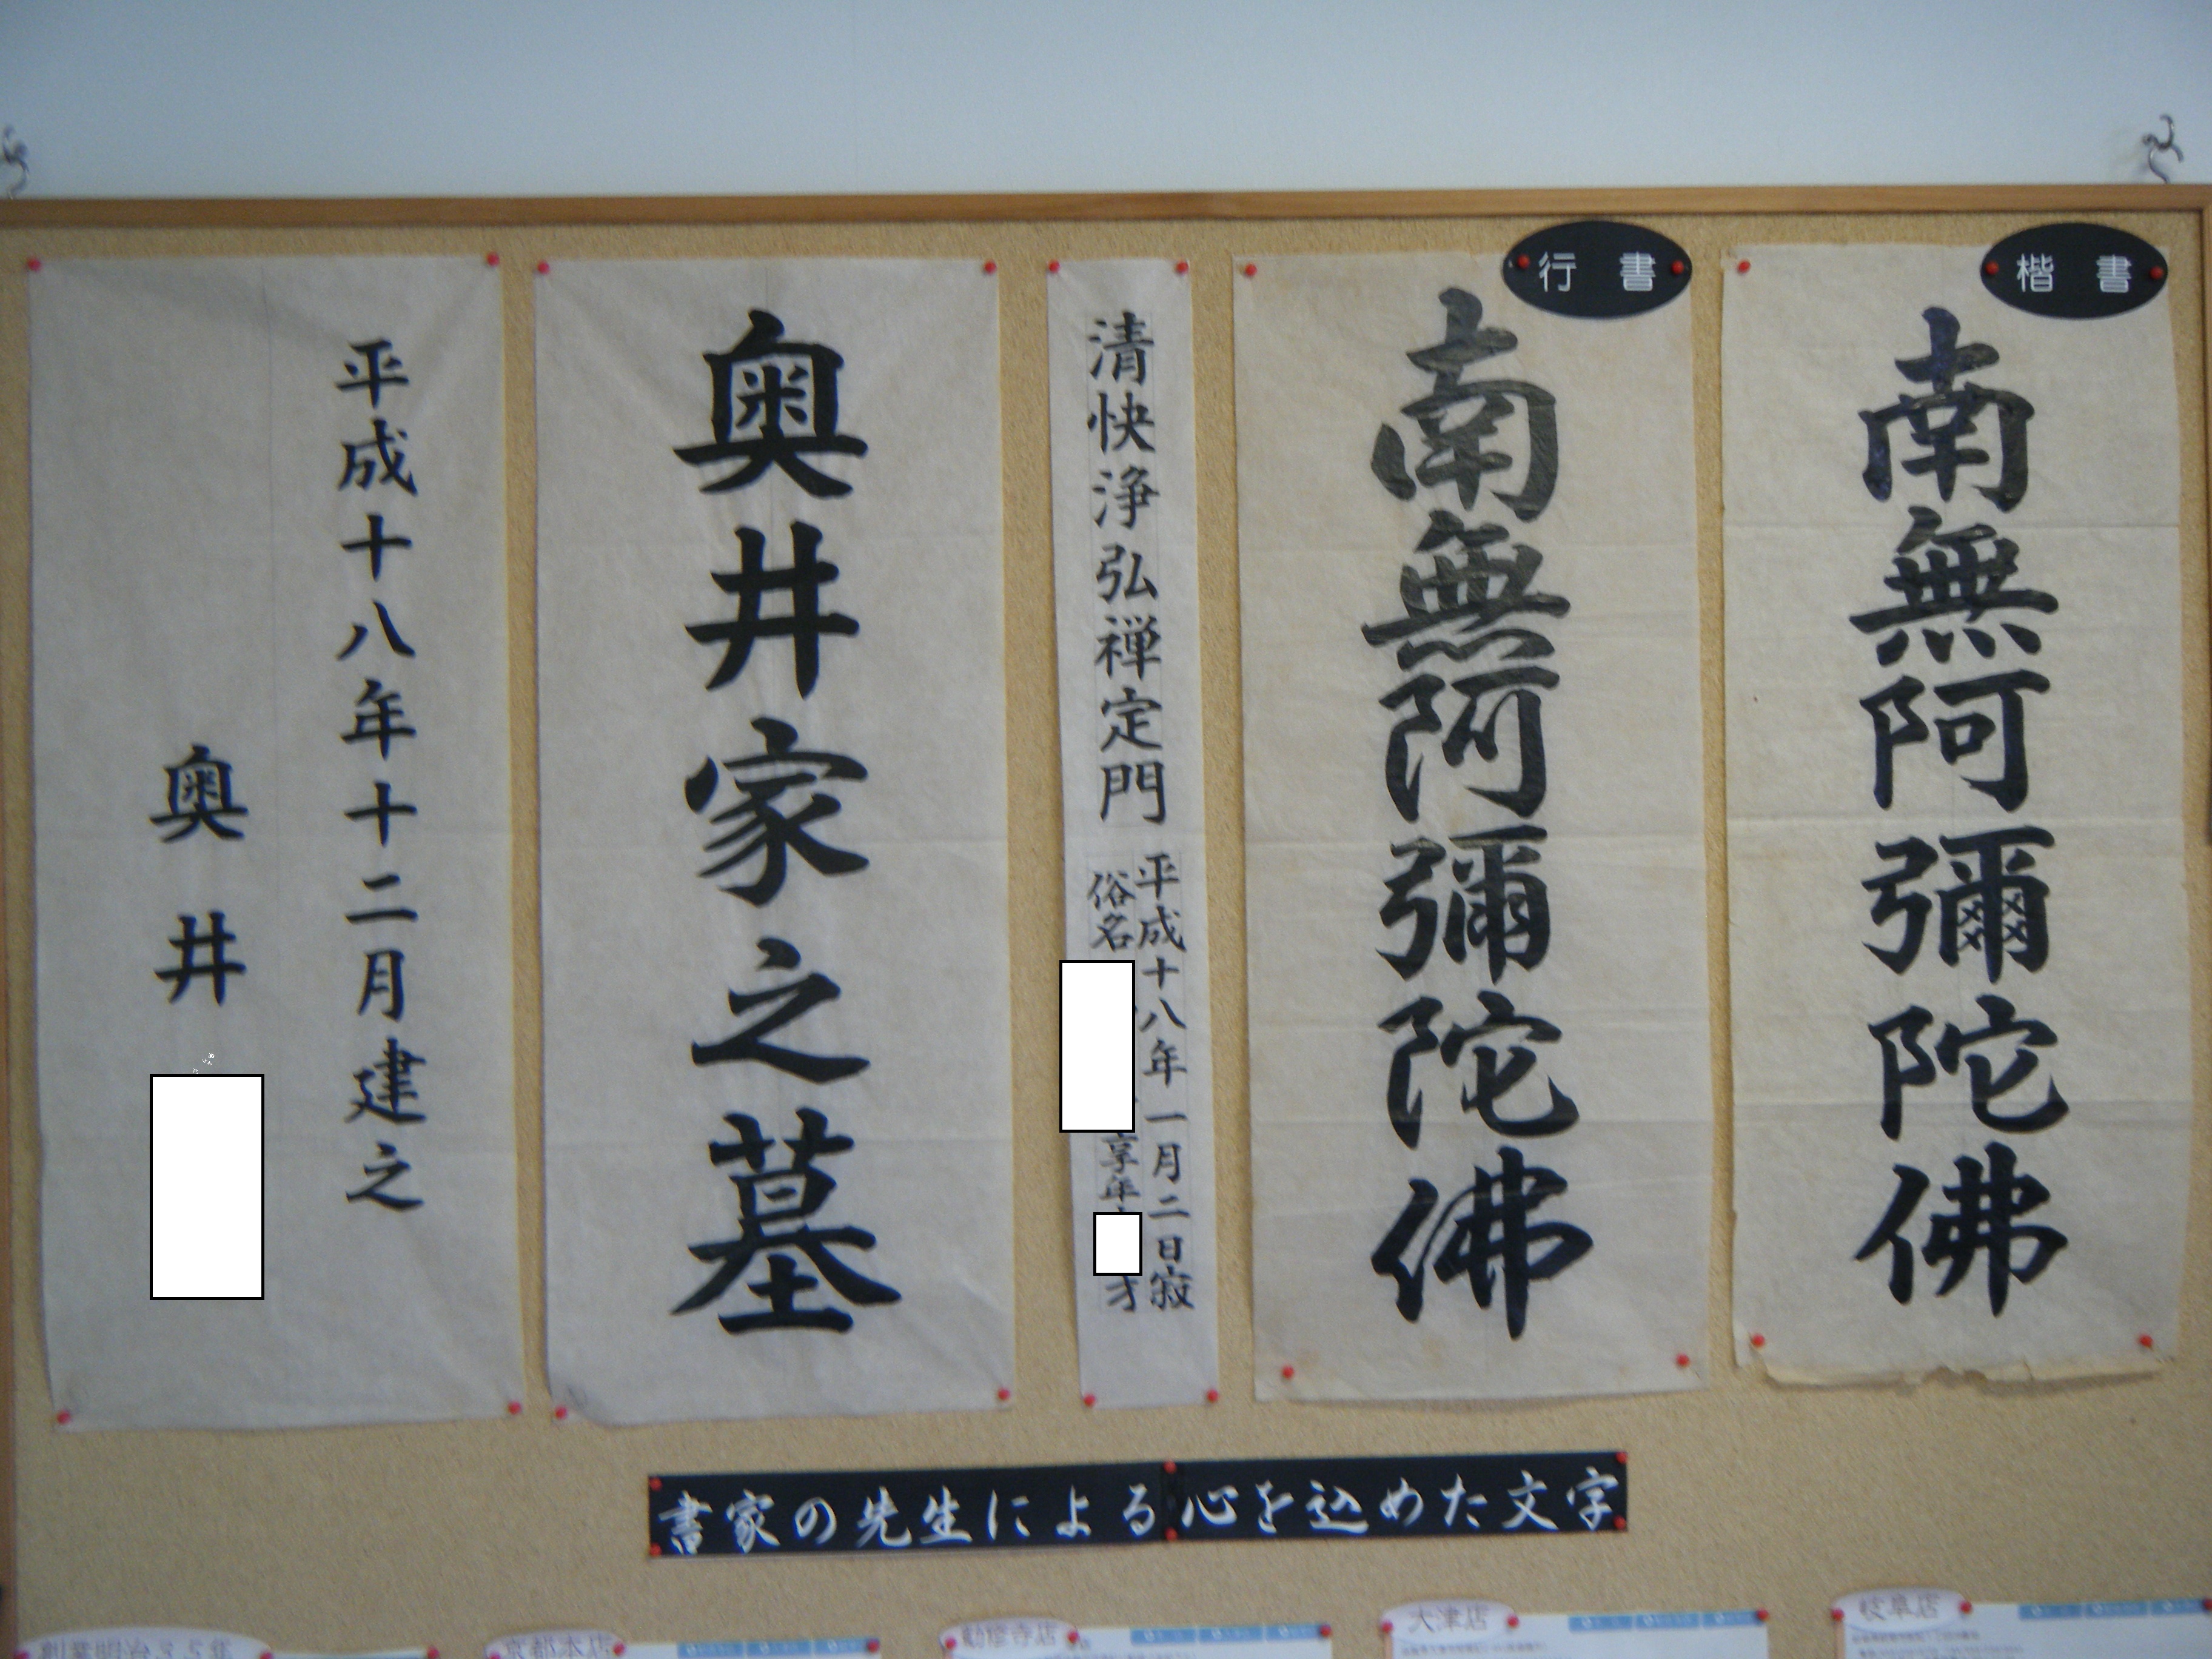 楷書
南無阿彌陀佛
行書
南無阿彌陀佛
清快浄弘禅定門
平成十八年一月二日寂
俗名
享年
才
奥井家之墓
平成十八年十二月建之
奥井
書家の先生による心を込めた文字
創業明治35年
京都本店
勧修寺店
大津店
岐阜店